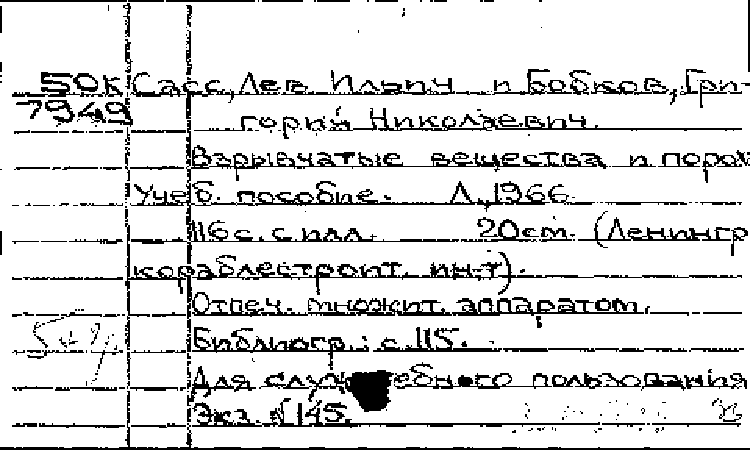 50К Сасс, Лев Ильич и Бобков, Гри-
7949 горий Николаевич.
Взрывчатые вещества и порох
Учеб. пособие. Л., 1966.
116 с. с илл. 20 см. (Ленингр
кораблестроит. ин-т).
Отпеч. множит. аппаратом.
Библиогр.: с. 115.
Для служебного пользования
Экз. №145.